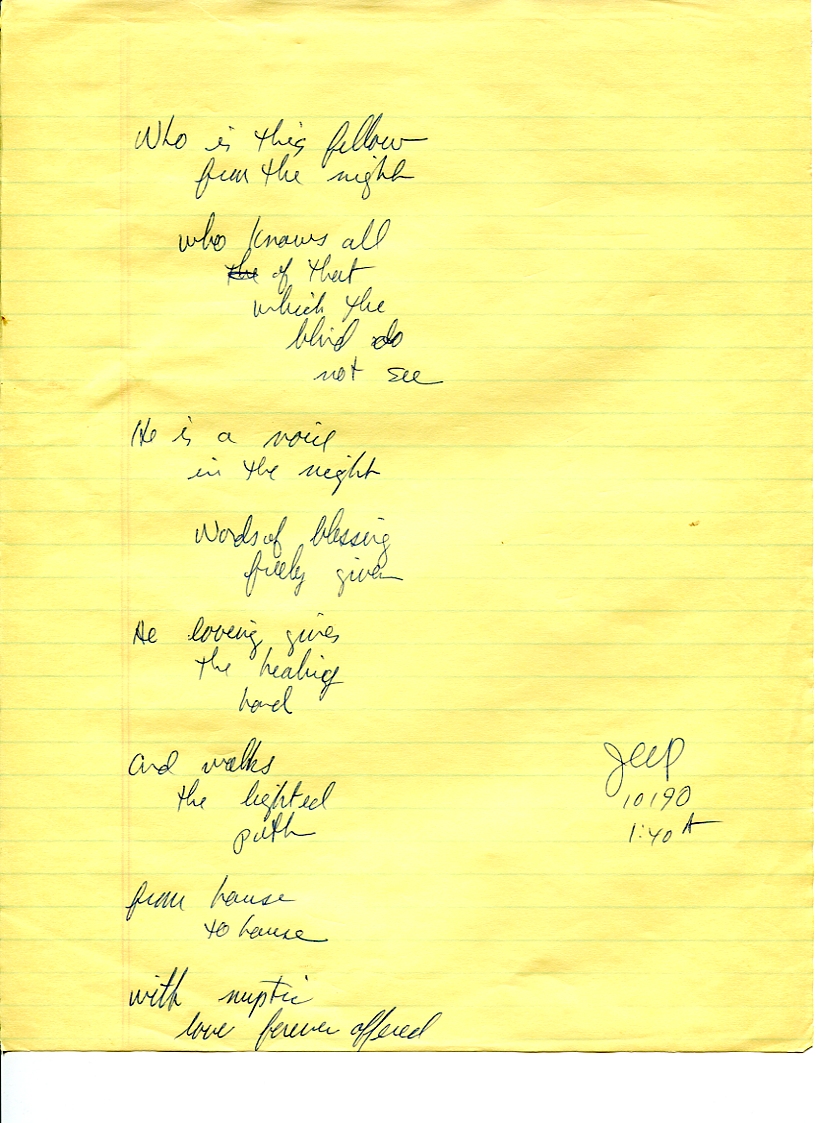 Who is this fellow
from the night
who knows all
the of that
which the
blind do
not see
He is a voice
in the night
Words of blessing
freely given
He loving gives
the healing
hand
and walks
the lighted
path
Jeep
10190
1:40 A
from house
to house
with
love forever offered